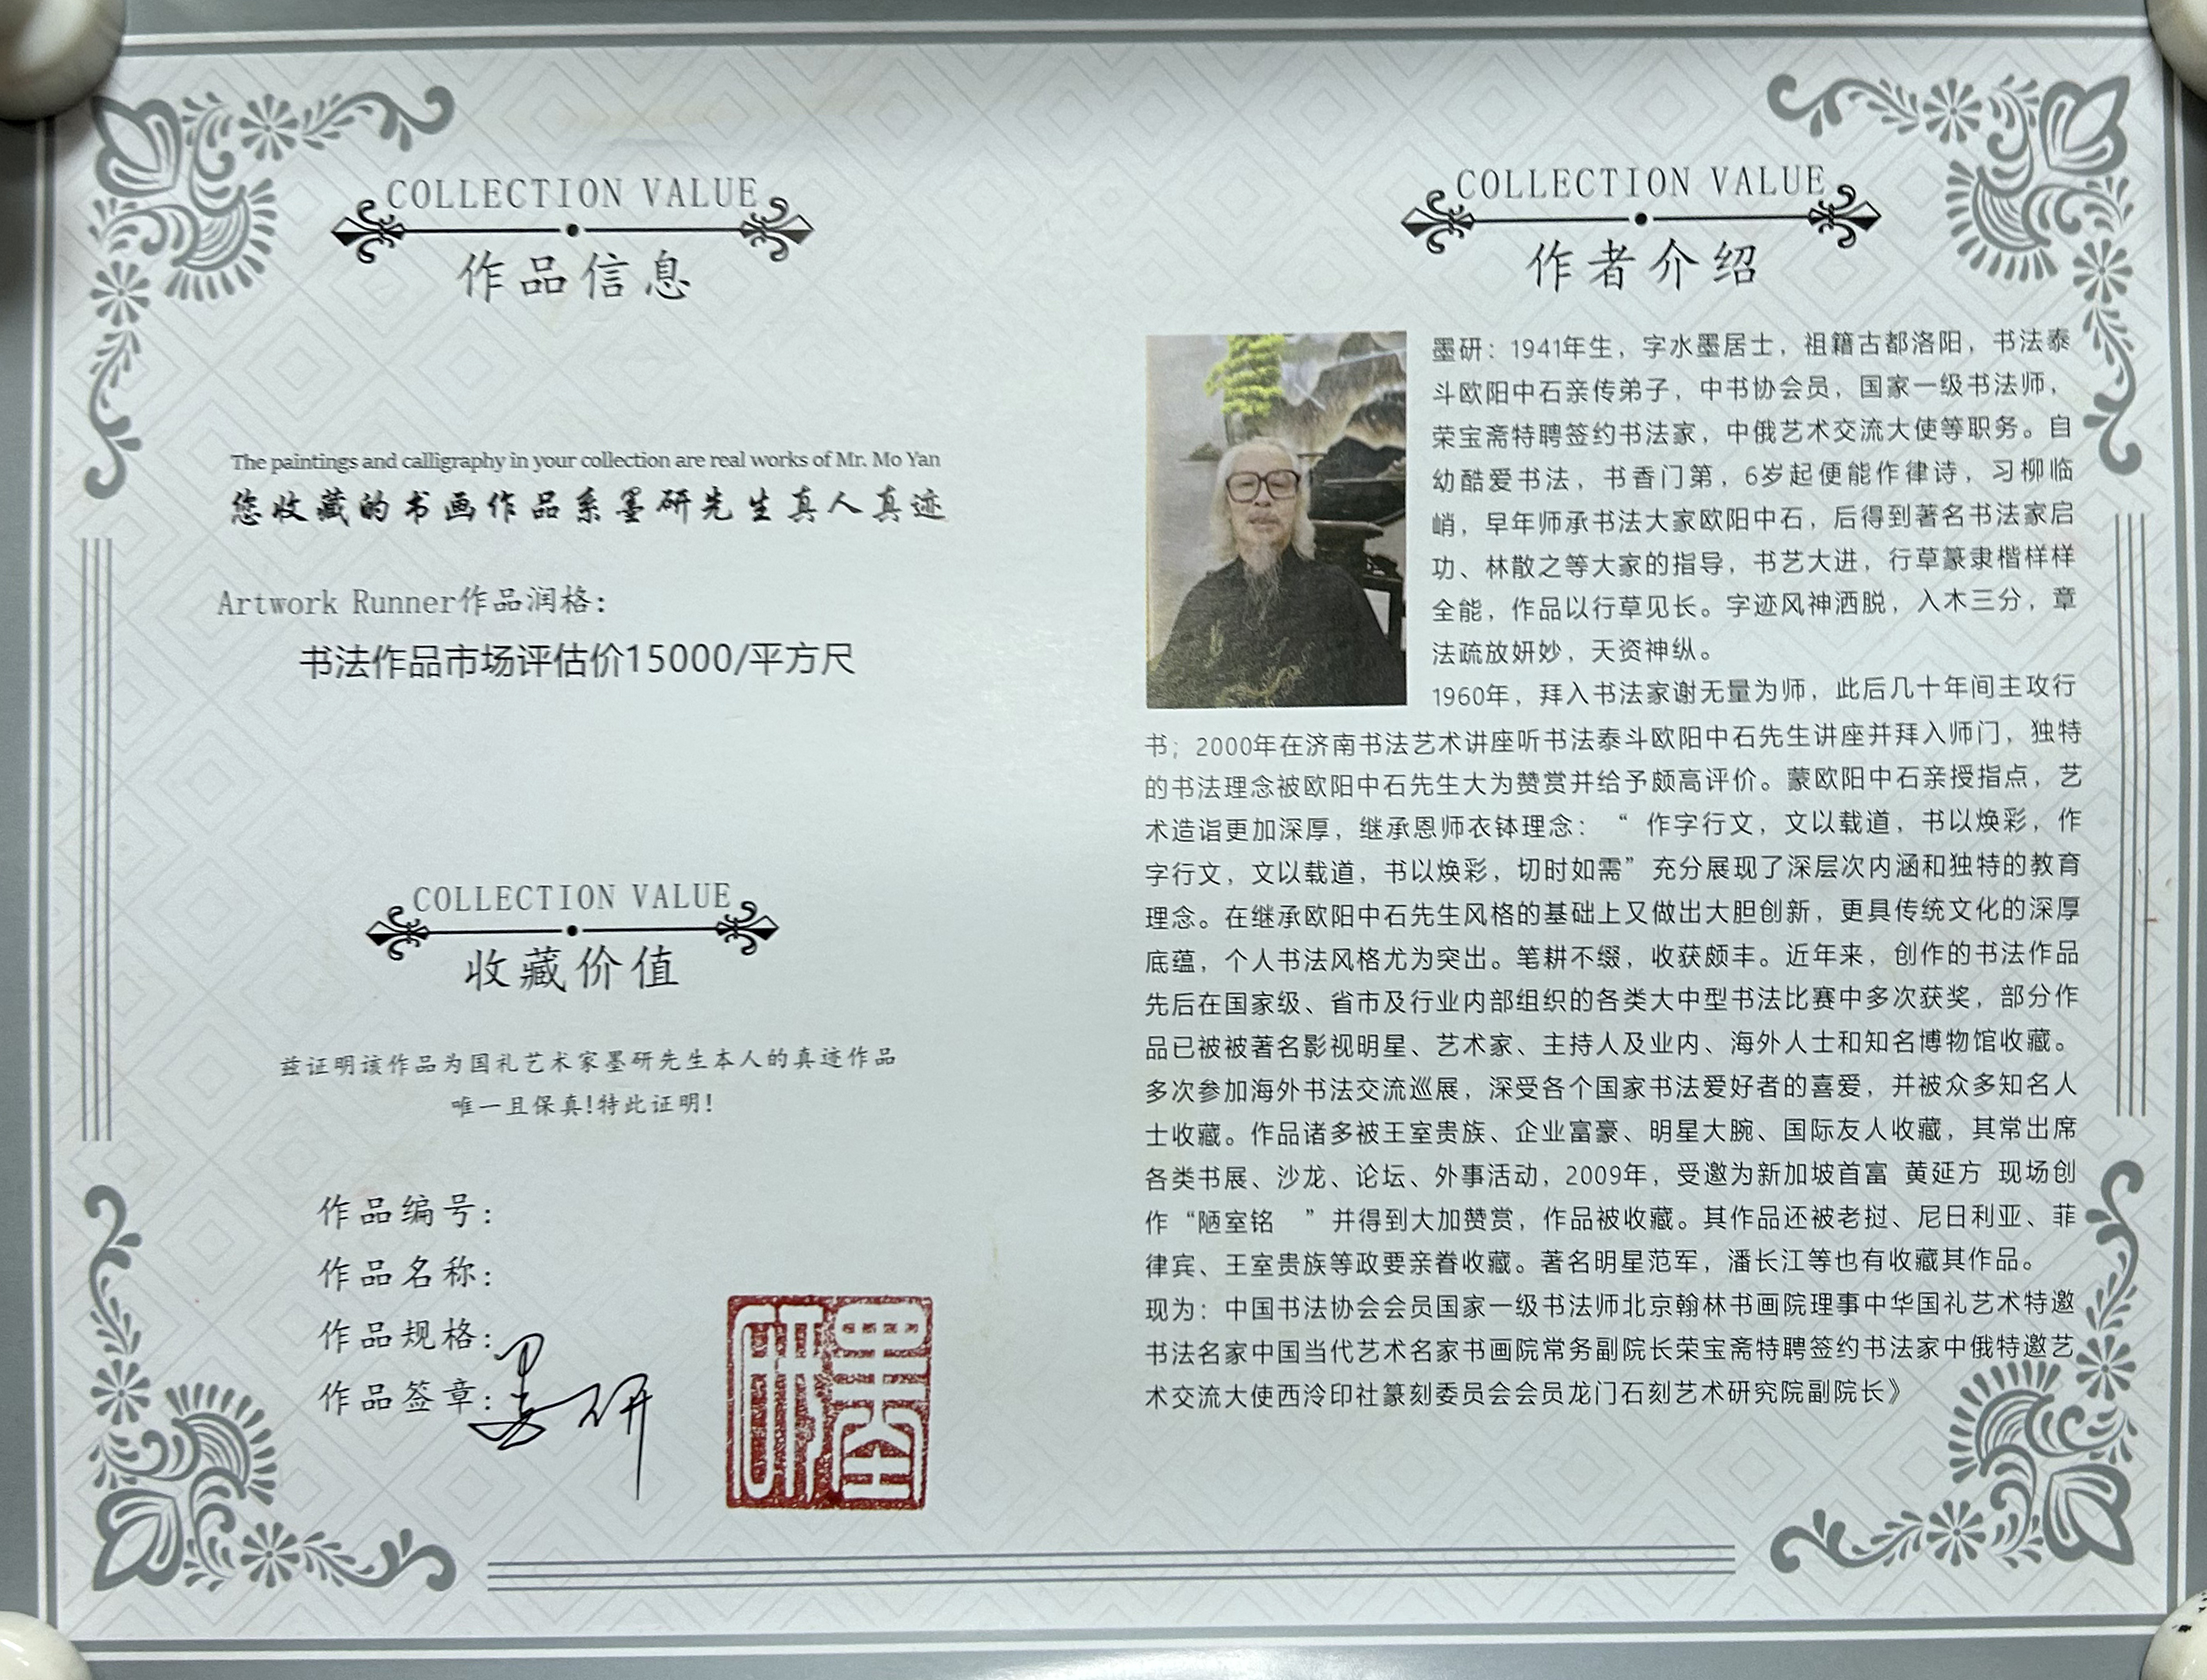 COLLECTION VALUE
作品信息
The paintings and calligraphy in your collection are real works of Mr. Mo Yan
您收藏的书画作品系墨研先生真人真迹
Artwork Runner作品润格：
书法作品市场评估价15000/平方尺
COLLECTION VALUE
收藏价值
兹证明该作品为国礼艺术家墨研先生本人的真迹作品
唯一且保真！特此证明！
作品编号：
作品名称：
作品规格：
作品签章：墨研
墨研
COLLECTION VALUE
作者介绍
墨研：1941年生，字水墨居士，祖籍古都洛阳，书法泰
斗欧阳中石亲传弟子，中书协会员，国家一级书法师，
荣宝斋特聘签约书法家，中俄艺术交流大使等职务。自
幼酷爱书法，书香门第，6岁起便能作律诗，习柳临
峭，早年师承书法大家欧阳中石，后得到著名书法家启
功、林散之等大家的指导，书艺大进，行草篆隶楷样样
全能，作品以行草见长。字迹风神洒脱，入木三分，章
法疏放妍妙，天资神纵。
1960年，拜入书法家谢无量为师，此后几十年间主攻行
书；2000年在济南书法艺术讲座听书法泰斗欧阳中石先生讲座并拜入师门，独特
的书法理念被欧阳中石先生大为赞赏并给予颇高评价。蒙欧阳中石亲授指点，艺
术造诣更加深厚，继承恩师衣钵理念：“作字行文，文以载道，书以焕彩，作
字行文，文以载道，书以焕彩，切时如需”充分展现了深层次内涵和独特的教育
理念。在继承欧阳中石先生风格的基础上又做出大胆创新，更具传统文化的深厚
底蕴，个人书法风格尤为突出。笔耕不缀，收获颇丰。近年来，创作的书法作品
先后在国家级、省市及行业内部组织的各类大中型书法比赛中多次获奖，部分作
品已被被著名影视明星、艺术家、主持人及业内、海外人士和知名博物馆收藏。
多次参加海外书法交流巡展，深受各个国家书法爱好者的喜爱，并被众多知名人
士收藏。作品诸多被王室贵族、企业富豪、明星大腕、国际友人收藏，其常出席
各类书展、沙龙、论坛、外事活动，2009年，受邀为新加坡首富 黄延方 现场创
作“陋室铭 ”并得到大加赞赏，作品被收藏。其作品还被老挝、尼日利亚、菲
律宾、王室贵族等政要亲眷收藏。著名明星范军，潘长江等也有收藏其作品。
现为：中国书法协会会员国家一级书法师北京翰林书画院理事中华国礼艺术特邀
书法名家中国当代艺术名家书画院常务副院长荣宝斋特聘签约书法家中俄特邀艺
术交流大使西泠印社篆刻委员会会员龙门石刻艺术研究院副院长》